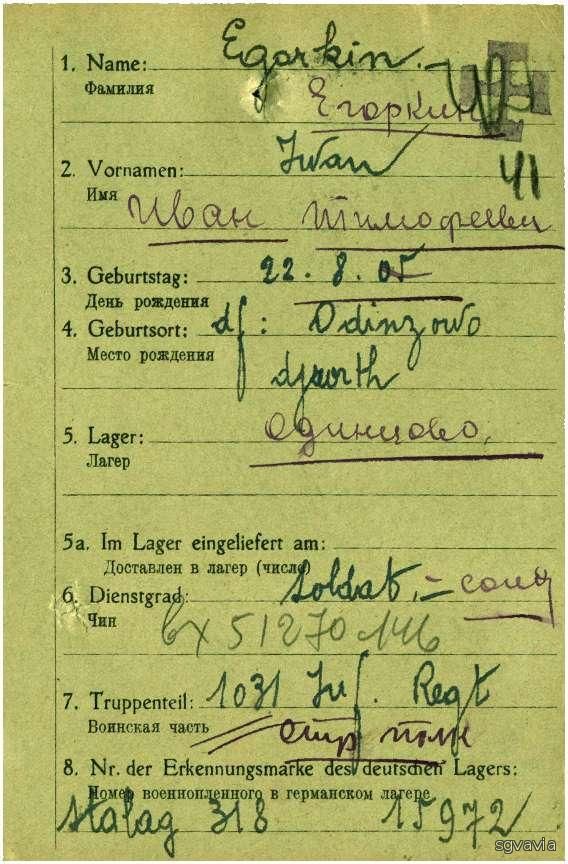 1. Name: Egorkin.
Фамилия
Егоркин
2. Vornamen: Iwan
41
Имя
Иван Тимофееви
3. Geburtstag: 22. 8. 05
День рождения
4. Geburtsort: df: Odinzowo
Место рождения
5. Lager: Одинцово,
Лагер
5a. Im Lager eingeliefert am:
Доставлен в лагер (число)
6. Dienstgrad: Soldat, – солд
Чин
вх 51270 146
7. Truppenteil: 1031 Inf. Regt
Воинская часть
стр полк
8. Nr. der Erkennungsmarke des deutschen Lagers:
Номер военнопленного в германском лагере
Stalag 318 15972
sgvavia